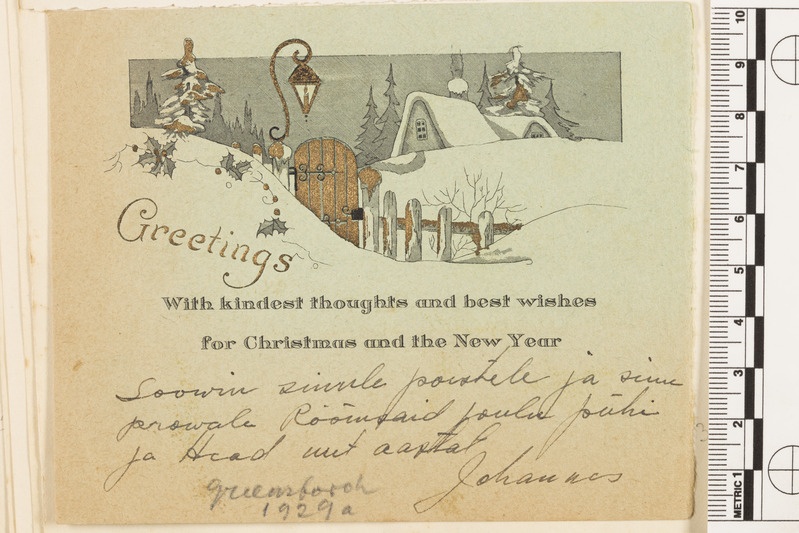 Greetings
With kindest thoughts and best wishes
for Christmas and the New Year
Soowin sinule poistele ja sinu
prowale Rõõmsaid joulu pühi
ja Head uut aastat
Johannes
1929a
10
9
8
7
6
5
4
3
2
METRIC 1